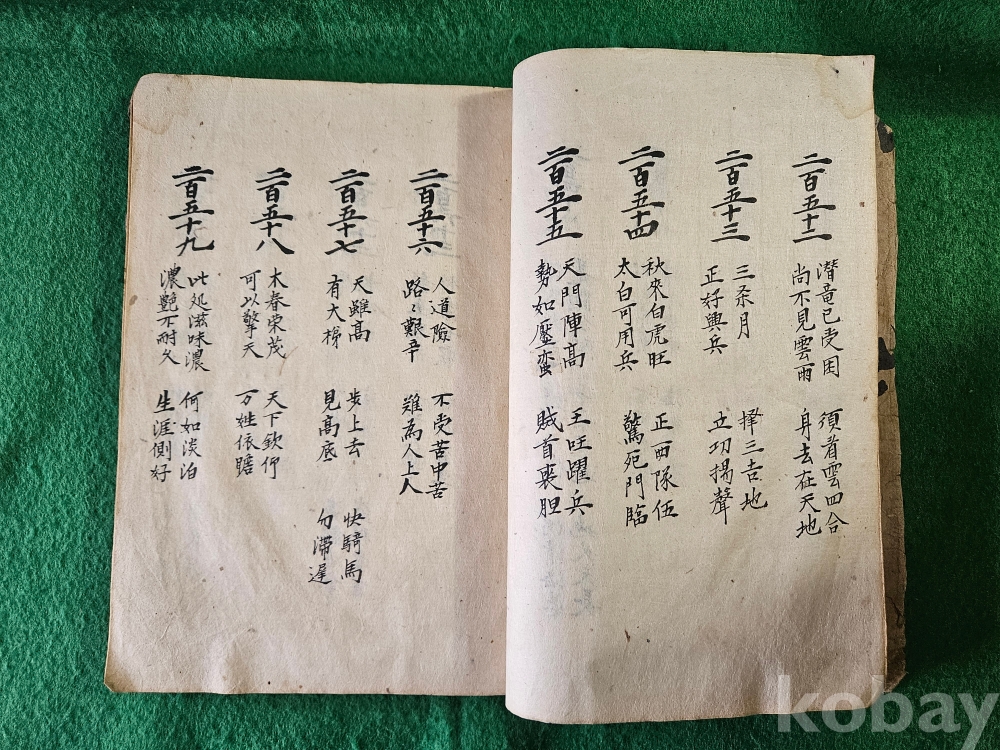 二百五十二
潛竜已受困
尚不見雲雨
須着雲四合
身去在天地
二百五十三
三条月
正好興兵
择三吉地
立功揚聲
二百五十四
秋來白虎旺
太白可用兵
正西隊伍
驚死門臨
二百五十五
天門陣高
勢如壓蛮
王旺躍兵
賊首喪胆
二百五十六
人道險
路〻艱辛
不受苦中苦
難為人上人
二百五十七
天雖高
有大梯
步上去
見高底
快騎馬
勿滯遲
二百五十八
木春荣茂
可以擎天
天下欽仰
万姓依賠
二百五十九
此処滋味濃
濃艷不耐久
何如淡泊
生涯側好
kobay